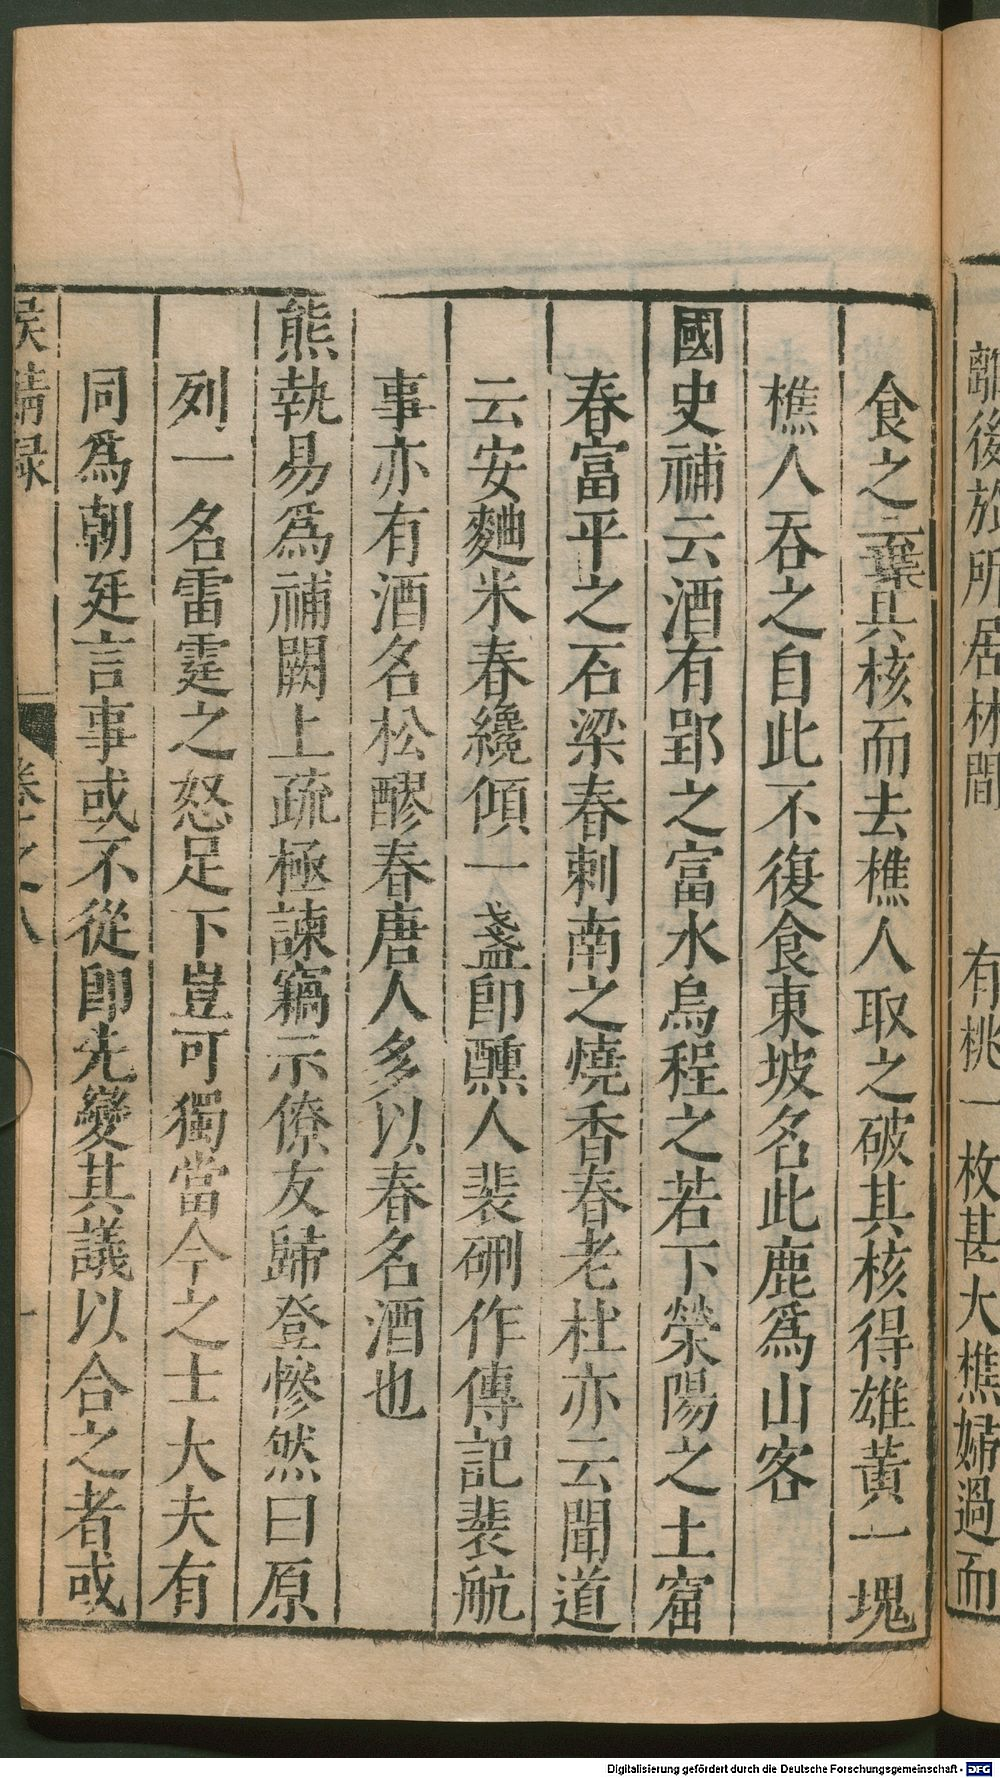 離後放所居林間　有桃一枚甚大樵婦過而
食之棄其核而去樵人取之破其核得雄黃一塊
樵人吞之自此不復食東坡名此鹿爲山客
國史補云酒有郢之富水烏程之若下滎陽之土窟
春富平之石梁春劍南之燒香春老杜亦云聞道
云安麯米春纔傾一盞卽醺人裴硎作傳記裴航
事亦有酒名松醪春唐人多以春名酒也
熊執易爲補闕上疏極諫竊示僚友歸登慘然曰原
列一名雷霆之怒足下豈可獨當今之士大夫有
同爲朝廷言事或不從卽先變其議以合之者或
侯鯖録　卷之八　十
Digitalisierung gefördert durch die Deutsche Forschungsgemeinschaft - DFG